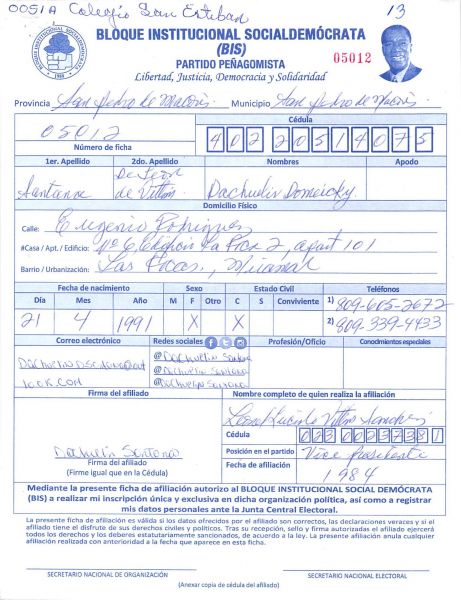 0051A Colegio San Esteban 13
BLOQUE INSTITUCIONAL SOCIALDEMÓCRATA
(BIS)
PARTIDO PEÑAGOMISTA
Libertad, Justicia, Democracia y Solidaridad
05012
Provincia San Pedro de Macorís. Municipio San Pedro de Macorís.
Cédula
05012
Número de ficha
1er. Apellido 2do. Apellido Nombres Apodo
Santana De León de Dachuelin Domeicky
Domicilio Físico
Calle: Eugenio Rodriguez
#Casa / Apt. / Edificio: No 6, Edificio La Paz 2, apart 101
Barrio / Urbanización: Las Miramar
Fecha de nacimiento Sexo Estado Civil Teléfonos
Día Mes Año M F Otro C S Conviviente 1) 809-605-2672
21 4 1991 X X 2) 809-339-4433
Correo electrónico Redes sociales Profesión/Oficio Conodmientos especiales
Firma del afiliado Nombre completo de quien realiza la afiliación
Cédula
Posición en el partido Vice Presidente
Firma del afiliado
(Firme igual que en la Cédula)
Fecha de afiliación 1984
Mediante la presente ficha de afiliación autorizo al BLOQUE INSTITUCIONAL SOCIAL DEMÓCRATA
(BIS) a realizar mi inscripción única y exclusiva en dicha organización política, así como a registrar
mis datos personales ante la Junta Central Electoral.
La presente ficha de afiliación es válida si los datos ofrecidos por el afiliado son correctos, las declaraciones veraces y si el
afiliado tiene el disfrute de sus derechos civiles y políticos. Tras su recepción, sello y firma autorizadas el afiliado ejercerá
todos los derechos y los deberes estatutariamente sancionados, de acuerdo a la ley. La presente afiliación anula cualquier
afiliación realizada con anterioridad a la fecha que aparece en esta ficha.
SECRETARIO NACIONAL DE ORGANIZACIÓN SECRETARIO NACIONAL ELECTORAL
(Anexar copia de cédula del afiliado)